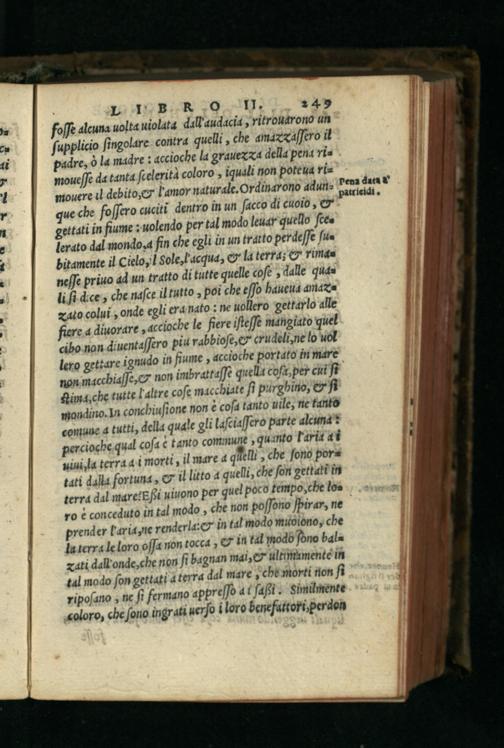 LIBRO II. 249
fosse alcuna uolta uiolata dall'audacia, ritrouarono un
supplicio singolare contra quelli, che amazzassero il
padre, ò la madre: accioche la grauezza della pena ri-
mouesse da tanta scelerità coloro, iquali non poteua ri-
mouere il debito, & l'amor naturale. Ordinarono adun-
Pena data a'
patricidi.
que che fossero cuciti dentro in un sacco di cuoio, &
gettati in fiume: uolendo per tal modo leuar quello sce-
lerato dal mondo, a fin che egli in un tratto perdesse su-
bitamente il Cielo, 'l Sole, l'acqua, & la terra; & rima-
nesse priuo ad un tratto di tutte quelle cose, dalle qua-
li si dice, che nasce il tutto, poi che esso haueua amaz-
zato colui, onde egli era nato: ne uollero gettarlo alle
fiere a diuorare, accioche le fiere istesse mangiato quel
cibo non diuentassero piu rabbiose, & crudeli, ne lo uol
lero gettare ignudo in fiume, accioche portato in mare
non macchiasse, & non imbrattasse quella cosa, per cui si
stima, che tutte l'altre cose macchiate si purghino, & si
mondino. In conchiusione non è cosa tanto uile, ne tanto
comune a tutti, della quale gli lasciassero parte alcuna:
percioche qual cosa è tanto commune, quanto l'aria a i
uiui, la terra a i morti, il mare a quelli, che sono por-
tati dalla fortuna, & il litto a quelli, che son gettati in
terra dal mare? Eßi uiuono per quel poco tempo, che lo-
ro è conceduto in tal modo, che non possono spirar, ne
prender l'aria, ne renderla: & in tal modo muoiono, che
la terra le loro ossa non tocca, & in tal modo sono bal-
zati dall'onde, che non si bagnan mai, & ultimamente in
tal modo son gettati a terra dal mare, che morti non si
riposano, ne si fermano appresso a i saßi. Similmente
coloro, che sono ingrati uerso i loro benefattori, perdon